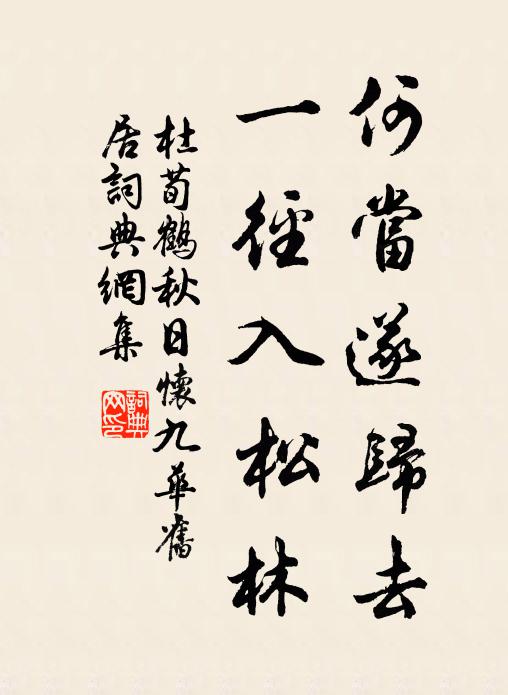 何當遂歸去
一徑入松林
杜荀鶴秋日懷九華舊
居詞典網集
詞典网印